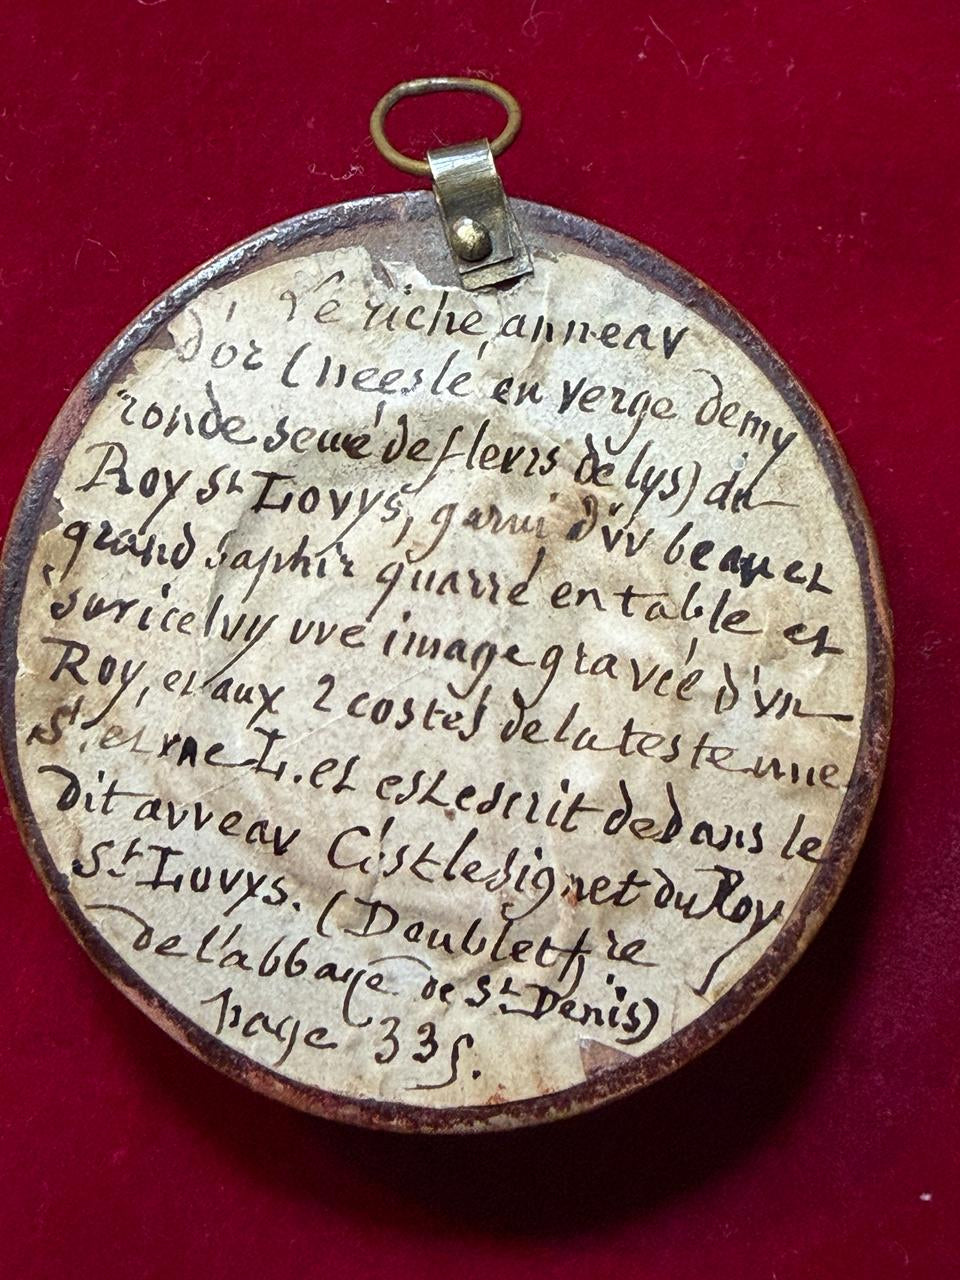 Le riche anneav
d'or (neesle en verge demy
ronde semé de flevrs de lys) du
Roy St Lovys, garni d'vv beau et
grand saphir quarré en table et
svricelvy vve image gravée d'vn
Roy, et aux 2 costes de la teste une
S. et vne L. et est escrit dedans le
dit avveav C'est le signet du Roy
St Lovys. (Doublet
de l'abbaye de St Denis)
page 335.